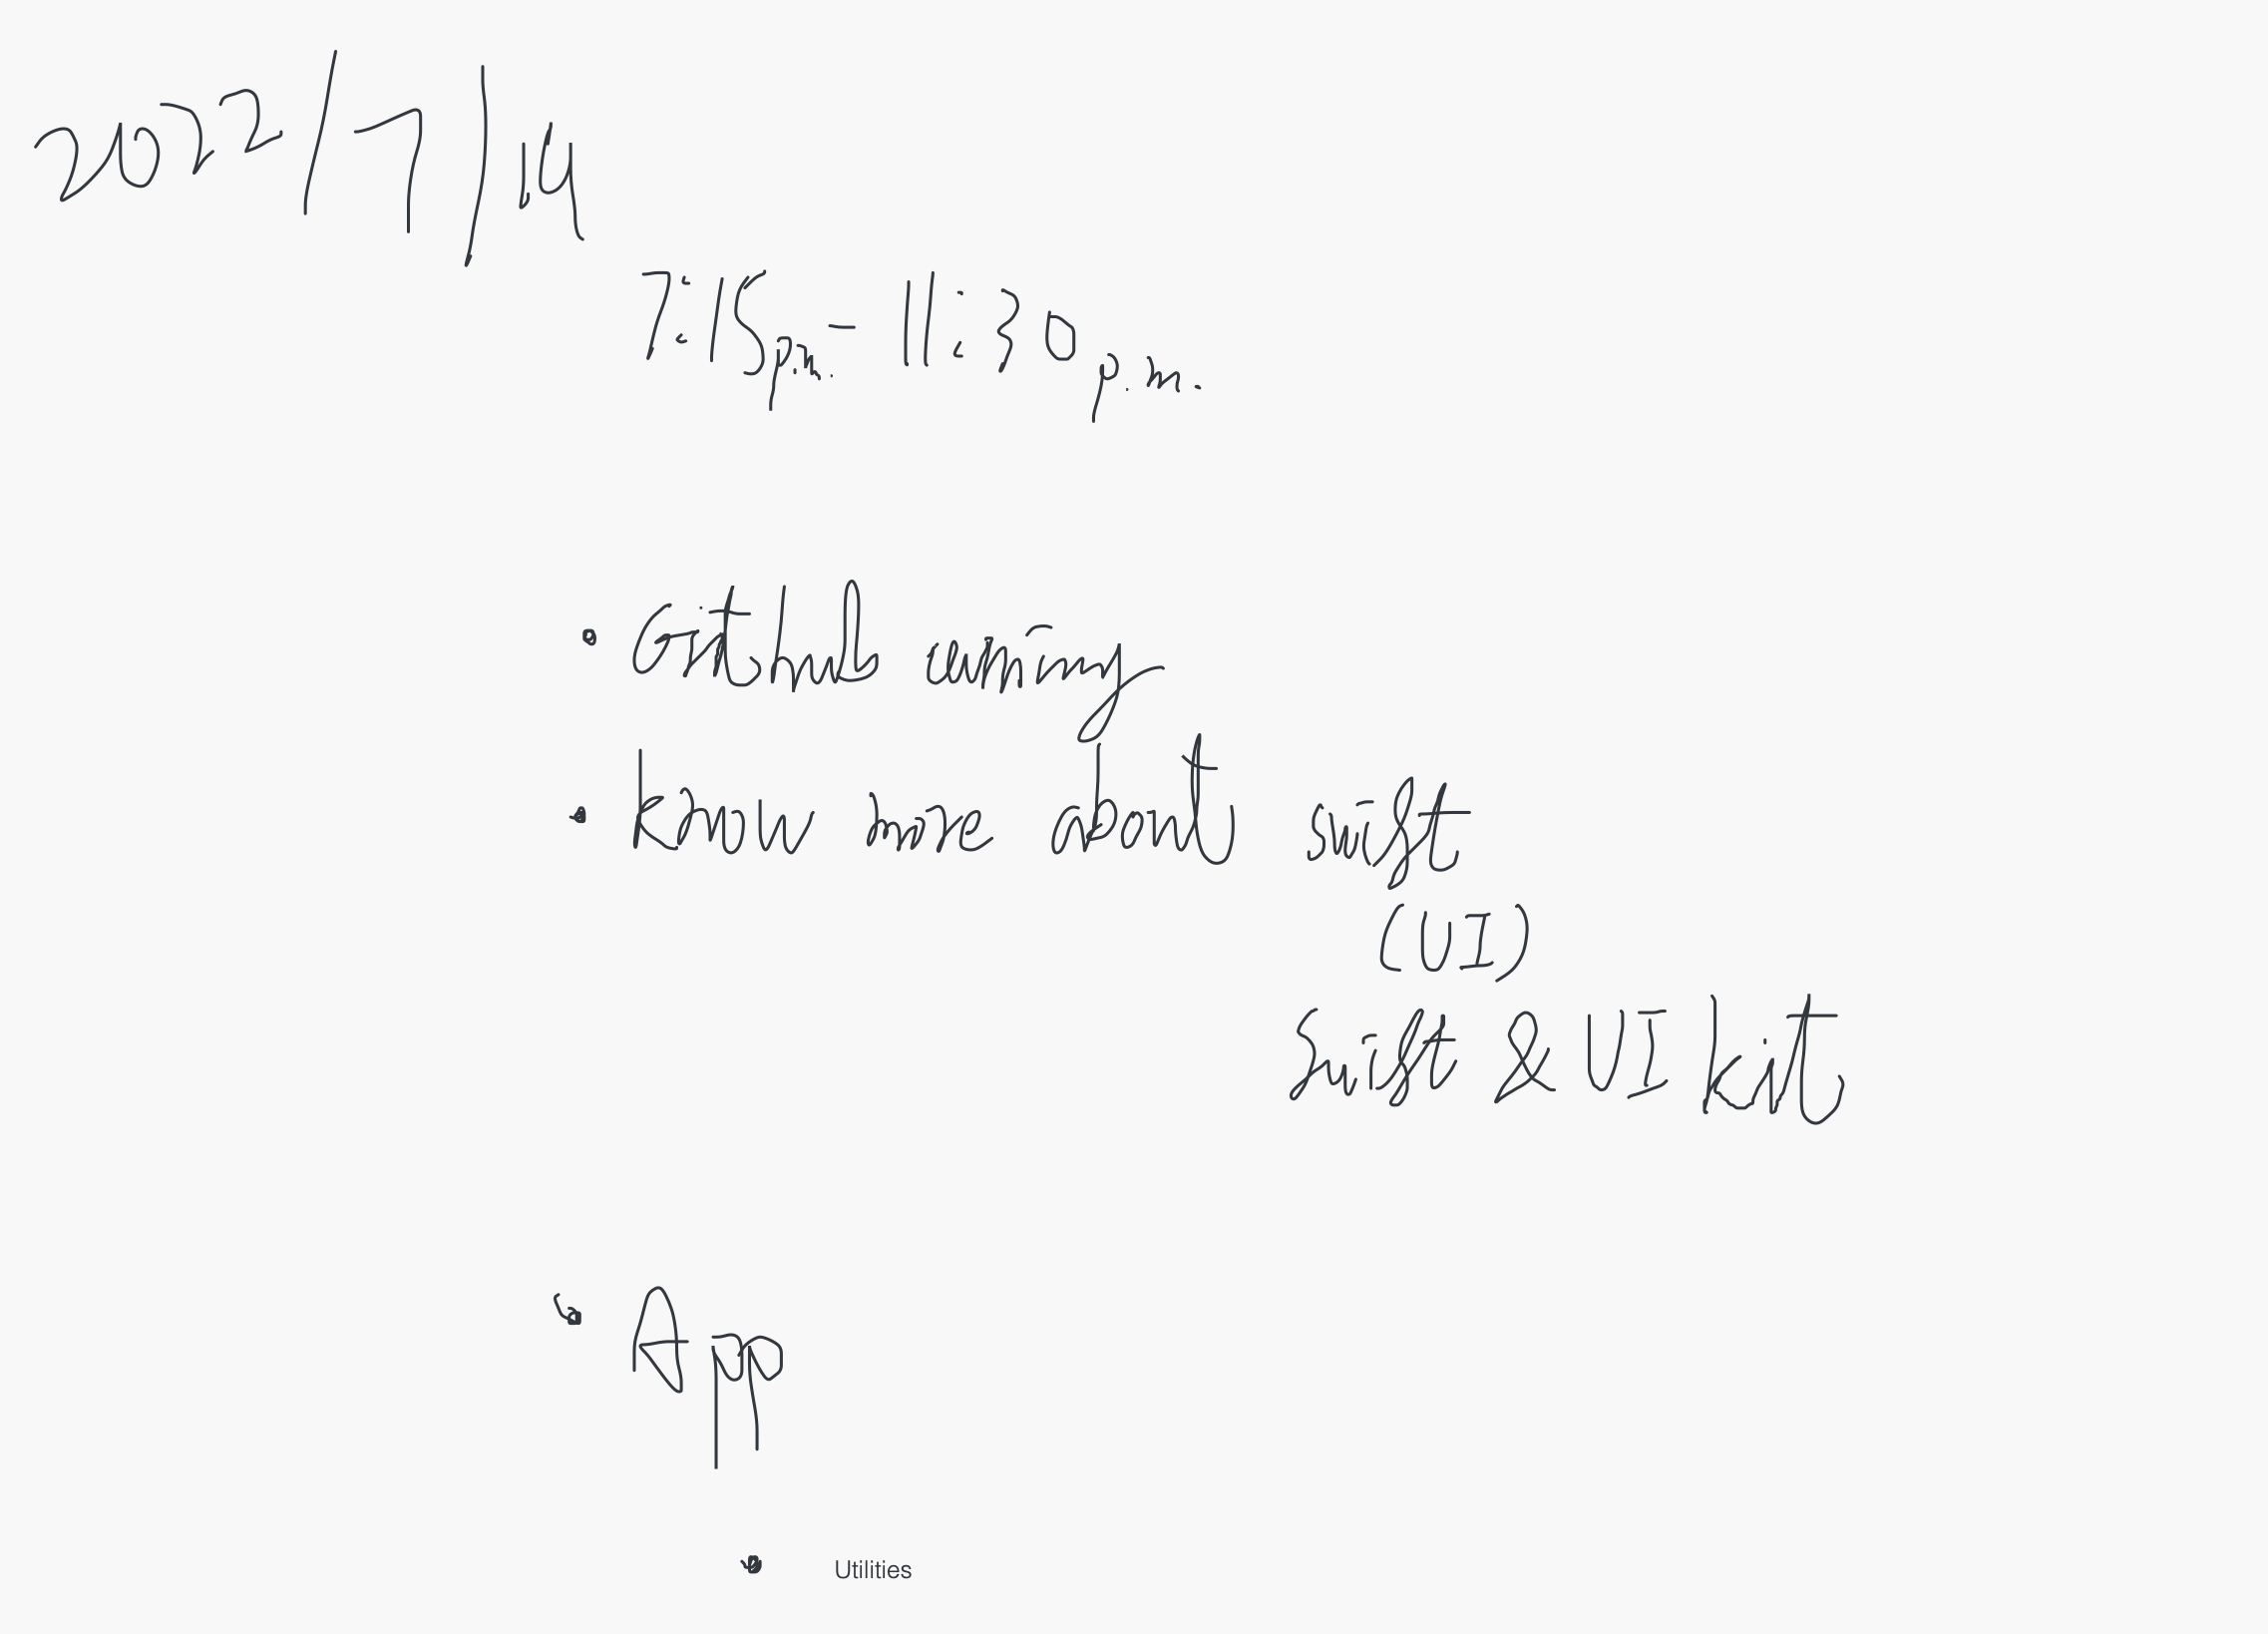 2022/7/14
7:15 p.m. - 11:30 p.m.
• Github
• know more about swift
(UI)
Swift & UI kit
• App
• Utilities